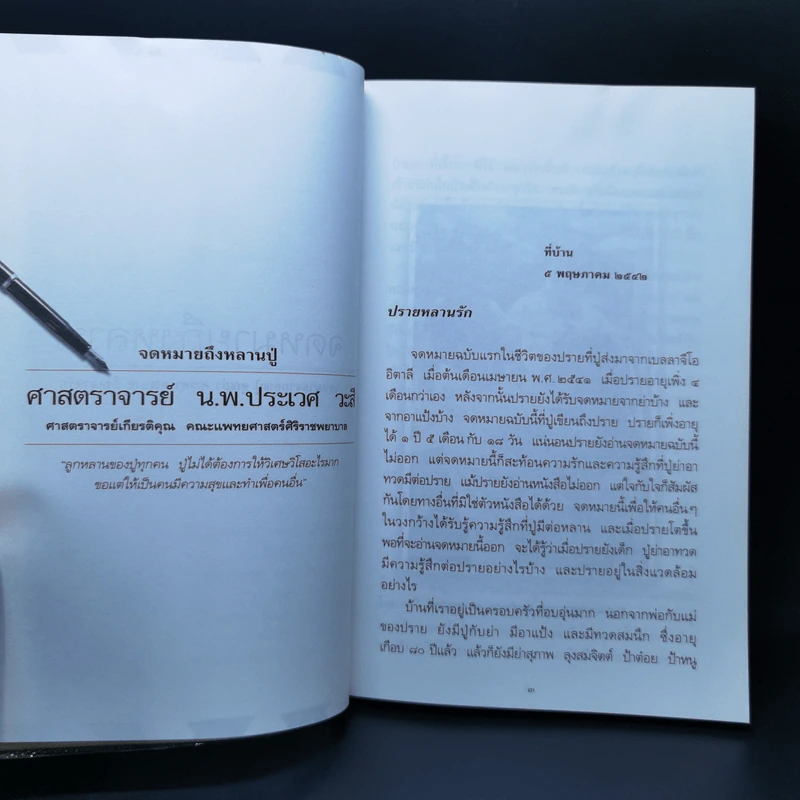 จดหมายถึงหลานปู่
ศาสตราจารย์ น.พ.ประเวศ วะสี
ศาสตราจารย์เกียรติคุณ คณะแพทยศาสตร์ศิริราชพยาบาล
“ลูกหลานของปู่ทุกคน ปู่ไม่ได้ต้องการให้วิเศษวิโสอะไรมาก
ขอแต่ให้เป็นคนมีความสุขและทำเพื่อคนอื่น”
ที่บ้าน
๕ พฤษภาคม ๒๕๔๒
ปรายหลานรัก
จดหมายฉบับแรกในชีวิตของปรายที่ปู่ส่งมาจากเบลลาจีโอ
อิตาลี เมื่อต้นเดือนเมษายน พ.ศ. ๒๕๔๑ เมื่อปรายอายุเพิ่ง ๔
เดือนกว่าเอง หลังจากนั้นปรายยังได้รับจดหมายจากย่าบ้าง และ
จากอาแป้งบ้าง จดหมายฉบับนี้ที่ปู่เขียนถึงปราย ปรายก็เพิ่งอายุ
ได้ ๑ ปี ๕ เดือน กับ ๑๘ วัน แน่นอนปรายยังอ่านจดหมายฉบับนี้
ไม่ออก แต่จดหมายนี้ก็สะท้อนความรักและความรู้สึกที่ปู่ย่าอา
ทวดมีต่อปราย แม้ปรายยังอ่านหนังสือไม่ออก แต่ใจกับใจก็สัมผัส
กันโดยทางอื่นที่มิใช่ตัวหนังสือได้ด้วย จดหมายนี้เพื่อให้คนอื่นๆ
ในวงกว้างได้รับรู้ความรู้สึกที่ปู่มีต่อหลาน และเมื่อปรายโตขึ้น
พอที่จะอ่านจดหมายนี้ออก จะได้รู้ว่าเมื่อปรายยังเด็ก ปู่ย่าอาทวด
มีความรู้สึกต่อปรายอย่างไรบ้าง และปรายอยู่ในสิ่งแวดล้อม
อย่างไร
บ้านที่เราอยู่เป็นครอบครัวที่อบอุ่นมาก นอกจากพ่อกับแม่
ของปราย ยังมีปู่กับย่า มีอาแป้ง และมีทวดสมนึก ซึ่งอายุ
เกือบ ๘๐ ปีแล้ว แล้วก็ยังมีย่าสุภาพ ลุงสมจิตต์ ป้าต๋อย ป้าหนู
๓